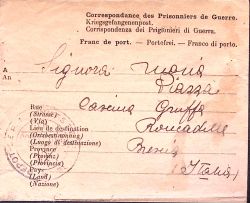 Correspondance des Prisonniers de Guerre.
Kriegsgefangenenpost.
Corrispondenza dei Prigionieri di Guerra.
Franc de port. — Portofrei. — Franco di porto.
A
An
Signora Maria
Piazza
Rue
(Strasse)
(Via)
Cascina
Lieu de destination
(Ortsbestimmung)
(Luogo di destinazione)
Roncadelle
Province
(Provinz)
(Provincia)
Brescia
Pays
(Land)
(Nazione)
(Italia)